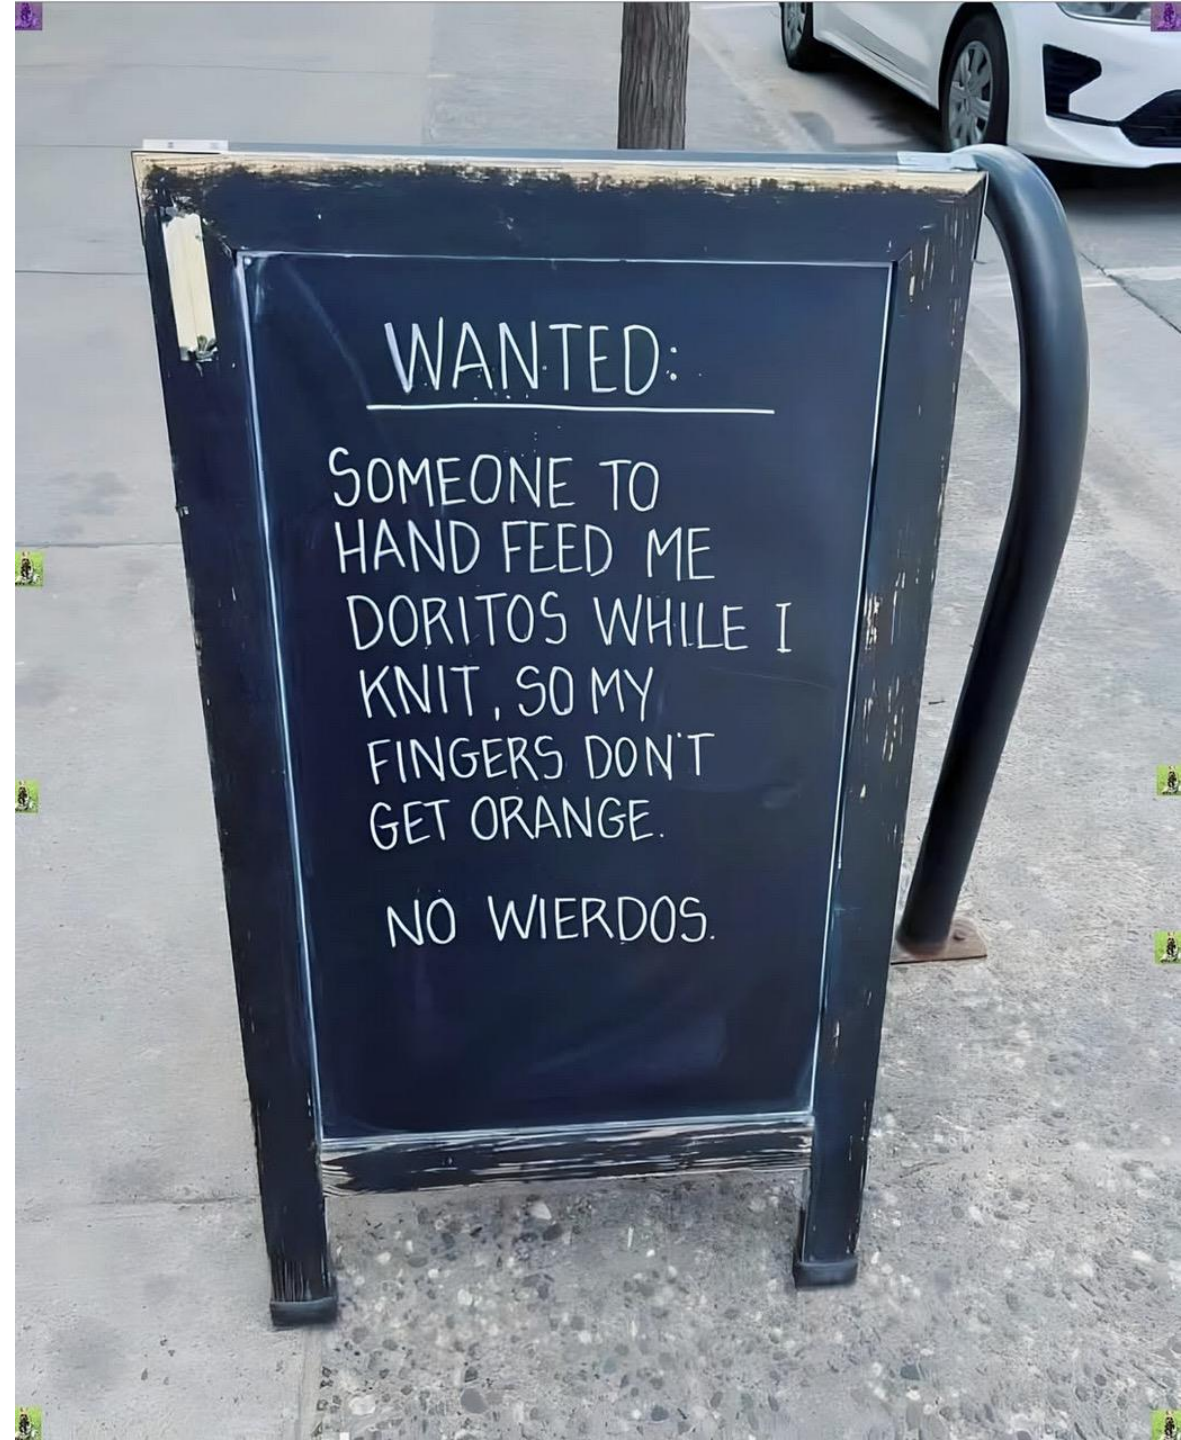 WANTED:
SOMEONE TO
HAND FEED ME
DORITOS WHILE I
KNIT, SO MY
FINGERS DON'T
GET ORANGE.
NO WIERDOS.